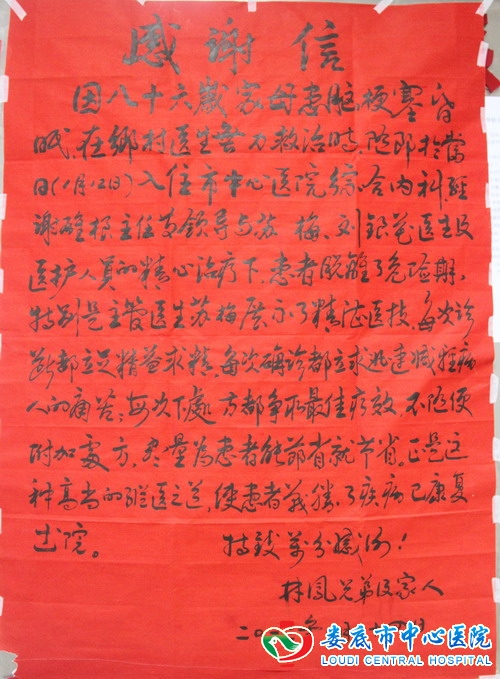 感谢信
因八十六歲家母患脑梗塞昏
眠,在鄉村医生無力救治時,随即於當
日(1月12日)入住市中心医院综合内科,经
谢雄根主任支领导与苏梅、刘银花医生及
医护人员的精心治疗下,患者脱離了危险期,
特别是主管医生苏梅展示了精湛医技,每次诊
断都立足精益求精,每次确诊都立求迅速减轻病
人的痛苦;每次下處方都争取最佳疗效,不随便
附加處方,尽量為患者能節省就节省。正是这
种高尚的醫之道,使患者戰勝了疾病已康复
出院。
特致萬分感谢!
林凤兄弟及家人
二0一
娄底市中心医院
LOUDI CENTRAL HOSPITAL